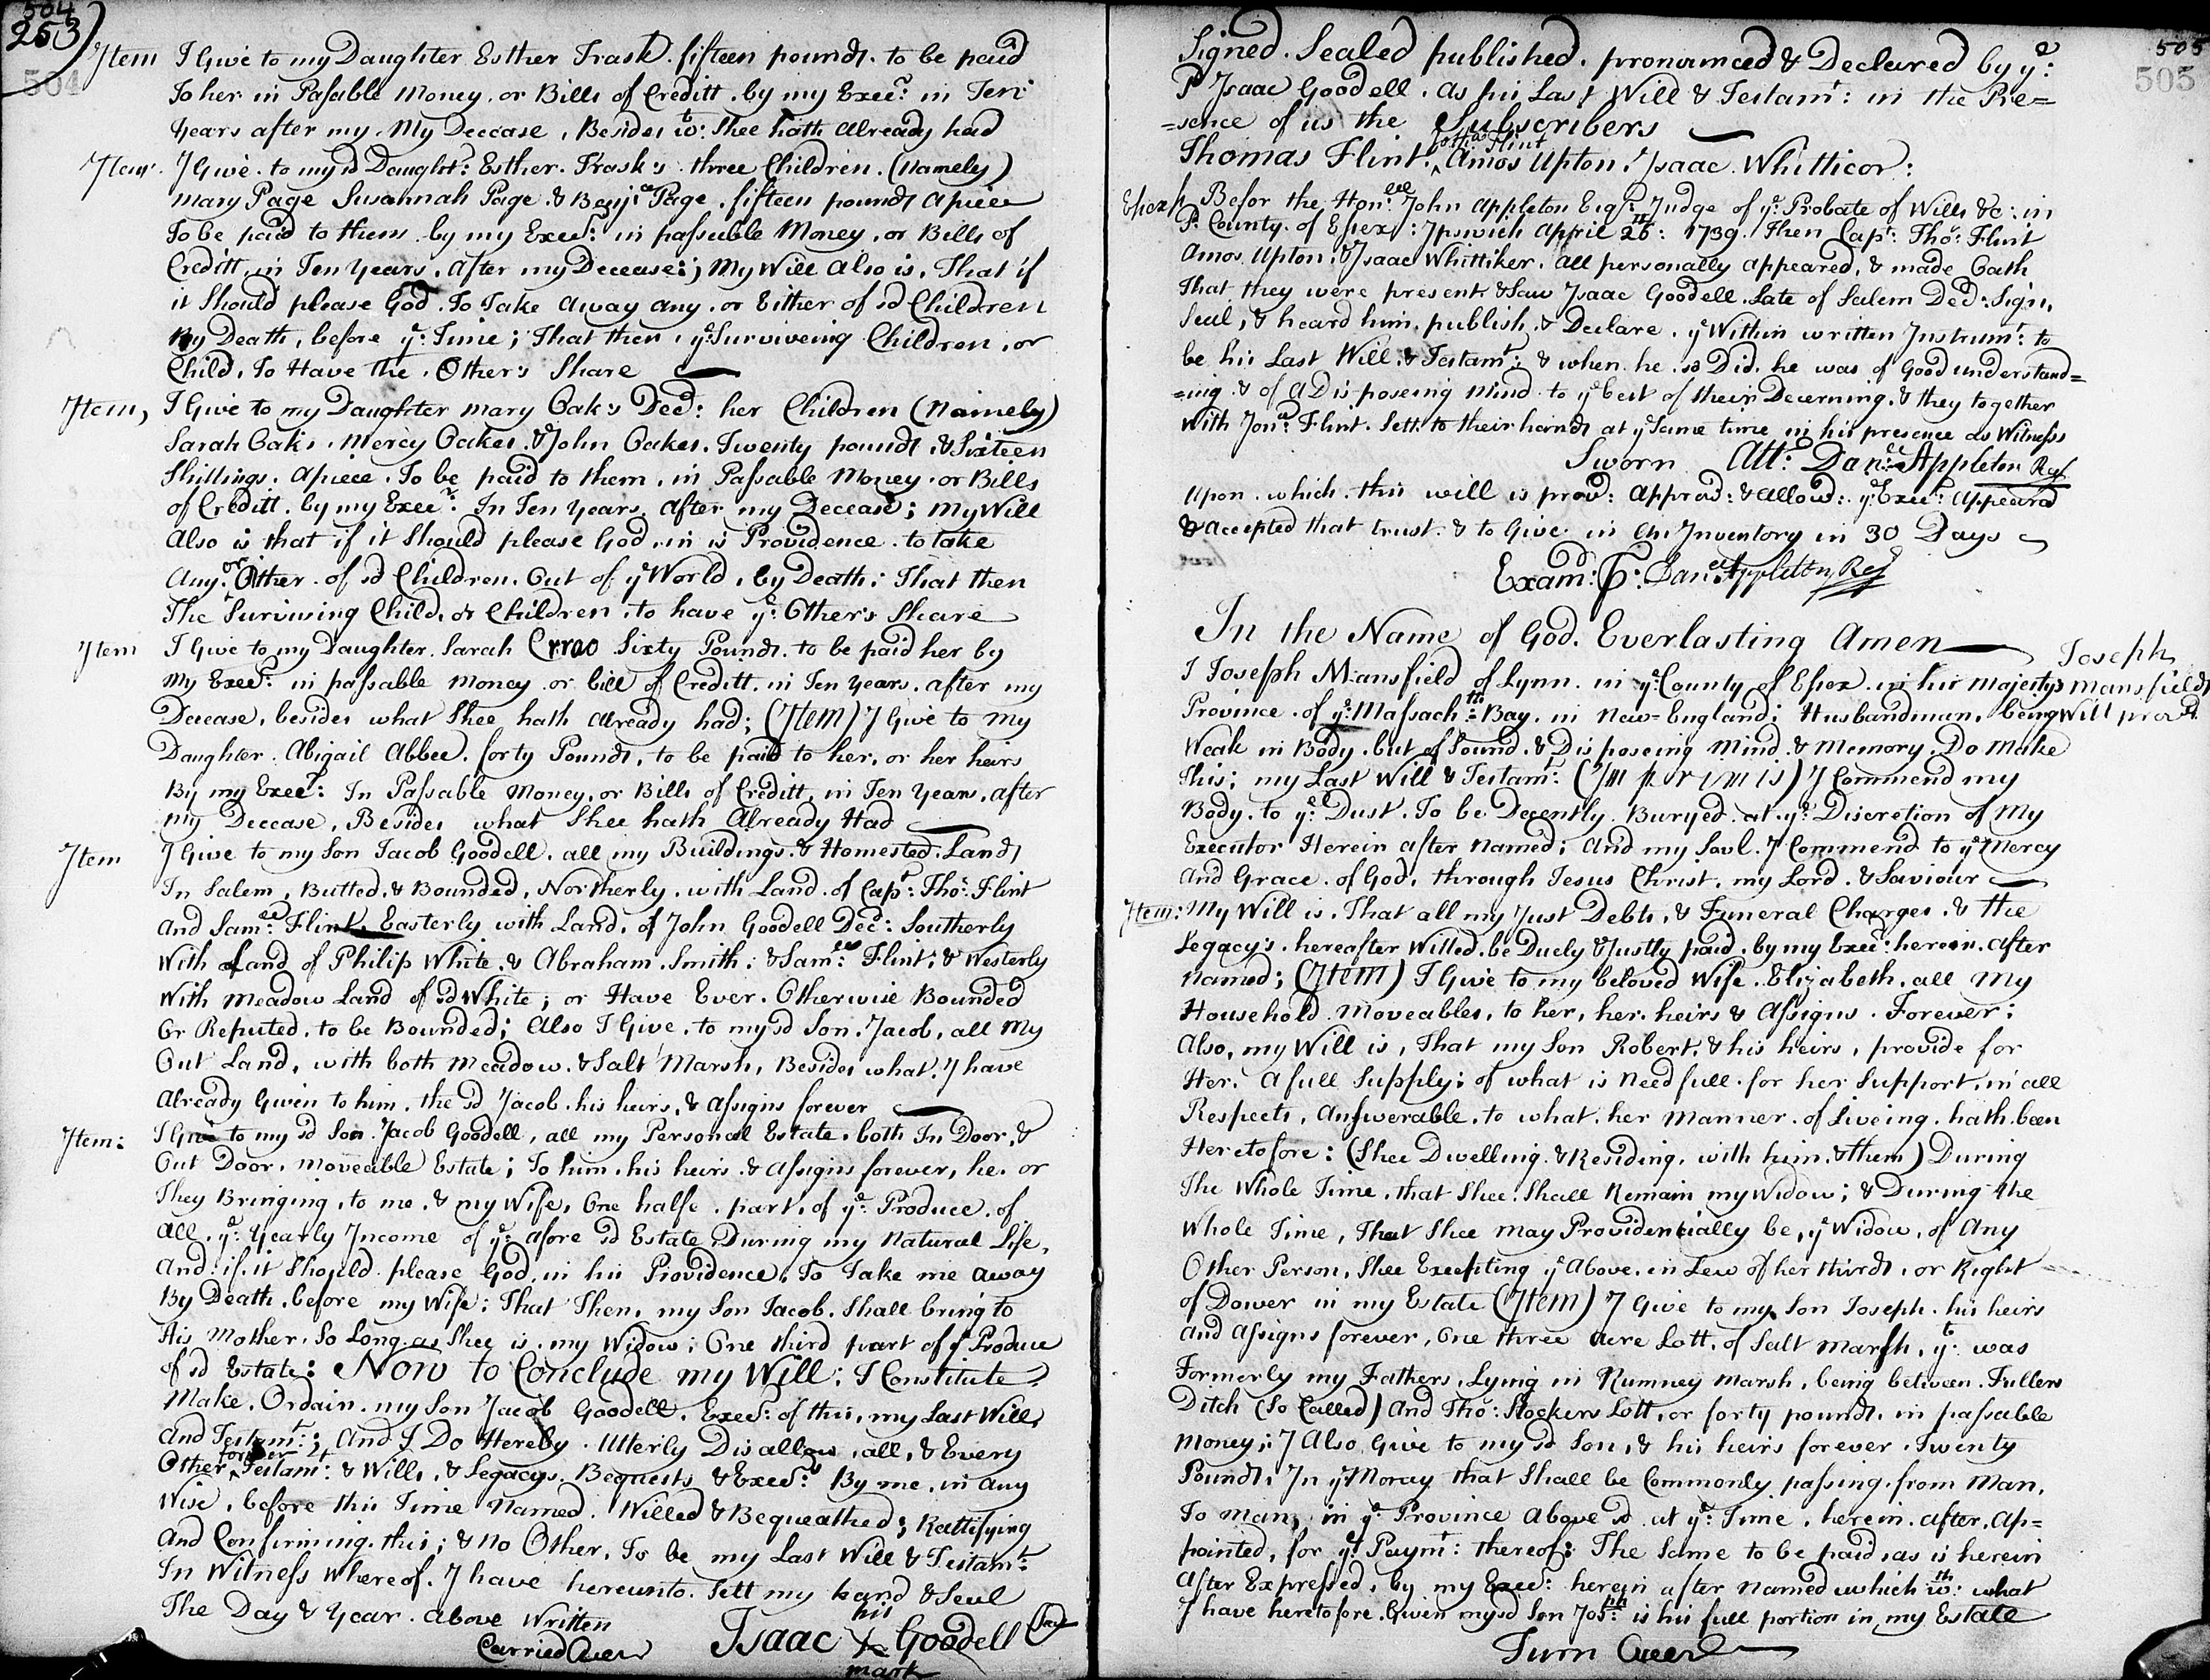 504
253
504
Item I Give to my Daughter Esther Trask fifteen pounds to be paid
To her in Passable Money or Bills of Creditt by my Execr: in Ten
Years after my My Decease, Besides wt: Shee hath already had
Item I Give to my sd Daughtr: Esther Trask's three Children (Namely)
Mary Page Susannah Page & Benja: Page fifteen pounds apiece
To be paid to them by my Execr: in passable Money, or Bills of
Creditt, in Ten Years, after my Decease; My Will also is, That if
it Should please God To Take away any or Either of sd Children
By Death, before ye: Time; That then, ye: Surviveing Children, or
Child, To Have the Other's Share
Item, I Give to my Daughter Mary Oak's Decd: her Children (Naimely)
Sarah Oak's Mercy Oakes & John Oakes Twenty pounds & Sixteen
Shillings Apiece To be paid to them, in Passable Money or Bills
of Creditt by my Execr: In Ten Years after my Decease; My Will
Also is that if it Should please God in is Providence to take
Any: or Other of sd Children Out of ye World, by Death; That then
The Surviving Child, or Children, to have ye: Other's Share
Item I Give to my Daughter Sarah Sixty Pounds to be paid her by
My Execr: in passable money or bill of Creditt, in Ten Years, after my
Decease, besides what Shee hath already had; (Item) I Give to my
Daughter Abigail Abbee forty Pounds, to be paid to her, or her heirs
By my Execr: In Passable Money, or Bills of Creditt, in Ten Years, after
my Decease, Besides what Shee hath Already Had
Item I Give to my Son Jacob Goodell all my Buildings & Homested Lands
In Salem, Butted & Bounded, Northerly with Land of Capt: Tho: Flint
And Samll: Flint, Easterly with Land, of John Goodell Decd: Southerly
With Land of Philip White & Abraham Smith; & Samll: Flint; & Westerly
With Meadow Land of sd White; or Have Ever Otherwise Bounded
Or Reputed to be Bounded; Also I Give, to my sd Son Jacob, all My
Out Land, with both Meadow & Salt Marsh, Besides what I have
Already Given to him, the sd Jacob his heirs, & Assigns forever
Item: I Give to my sd Son Jacob Goodell, all my Personal Estate, both In Door, &
Out Door, moveable Estate; To him, his heirs & Assigns forever, he or
They Bringing to me & my Wife, One halfe part, of ye: Produce of
All ye: Yearly Income of ye: afore sd Estate During my Natural Life,
And if it Should please God, in his Providence, To Take me away
By Death, before my Wife; That Then, my Son Jacob Shall bring to
His Mother, So Long as Shee is my Widow; One third part of ye Produce
of sd Estate: Now to Conclude my Will; I Constitute
Make, Ordain my Son Jacob Goodell, Execr: of this, my Last Will
And Testamt: And I Do Hereby Utterly Disallow, all, & Every
Other former Testamt: & Wills, & Legacys Bequests & Execrs: By me, in any
Wise, before this Time Named Willed & Bequeathed; Rattifying
And Confirming this; & No Other, To be my Last Will & Testamt:
In Witness whereof I have hereunto Sett my hand & Seal
The Day & Year above Written
Isaac his X mark Goodell Seal
Carried Over
505
505
Signed Sealed published pronounced & Declared by ye:
sd Isaac Goodell As his Last Will & Testamt: in the Pre=
=sence of us the Subscribers
Thomas Flint, Jona Flint Amos Upton, Isaac Whitticor:
Essex ss Befor the Honle: John Appleton Esqr: Judge of ye: Probate of Wills &c: in
sd: County of Essex: Ipswich April 26th: 1739 Then Capt: Tho: Flint
Amos Upton, & Isaac Whittiker all personally appeared, & made Oath
That they were present & Saw Isaac Goodell Late of Salem Decd: Sign,
Seal, & heard him publish & Declare ye Within written Instrumt: to
be his Last Will & Testamt: & when he so Did, he was of Good understand=
=ing & of a Disposeing Mind to ye best of their Decerning, & they together
With Jona: Flint Sett to their hands at ye Same time in his presence as Witness
Sworn Attr: Danll: Appleton Regr
Upon which this will is provd: Approvd: & Allowd: ye: Execr: Appeared
& Accepted that trust & to Give in an Inventory in 30 Days
Examd: Pr: Danll: Appleton, Regr
In the Name of God Everlasting Amen
Joseph Mansfields Will provd
I Joseph Mansfield of Lynn in ye: County of Essex in his Majestys
Province of ye: Massachts: Bay in New=England; Husbandman, being
Weak in Body but of Sound & Disposeing Mind & Memory Do Make
this; my Last Will & Testamt: (Imprimis) I Commend my
Body to ye: Dust, To be Decently Buryed at ye: Discretion of My
Executor Herein after named; And my Soul I Commend to ye Mercy
And Grace of God, through Jesus Christ my Lord & Saviour
Item: My Will is, That all my Just Debts, & Funeral Charges & the
Legacy's hereafter Willed be Duely & Justly paid by my Execr: herein after
Named; (Item) I Give to my beloved Wife Elizabeth, all My
Household Moveables, to her, her heirs & Assigns Forever;
Also, my Will is, That my Son Robert, & his heirs, provide for
Her A full Supply; of what is Needfull for her Support, in all
Respects, Answerable, to what her Manner of Liveing hath been
Heretofore; (Shee Dwelling & Residing, with him & them) During
The Whole Time, that Shee Shall Remain my Widow; & During the
Whole Time, That Shee May Providentially be, ye Widow, of Any
Other Person, Shee Excepting ye Above, in Lew of her thirds, or Right
of Dower in my Estate (Item) I Give to my Son Joseph his heirs
And Assigns forever, One three acre Lott, of Salt Marsh, yt: was
Formerly my Fathers, Lying in Rumney Marsh, being between Fullers
Ditch (So Called) And Tho: Stockers Lott, or forty pounds in passable
Money; I Also Give to my sd Son, & his heirs forever Twenty
Pounds, In ye Money that Shall be Commonly passing from Man,
To man, in ye: Province Above sd at ye: Time, herein after, Ap=
pointed, for ye: Paymt: thereof: The Same to be paid, as is herein
After Expressed, by my Execr: herein after Named which wth: what
I have heretofore Given my sd Son Josph: is his full portion in my Estate
Turn Over